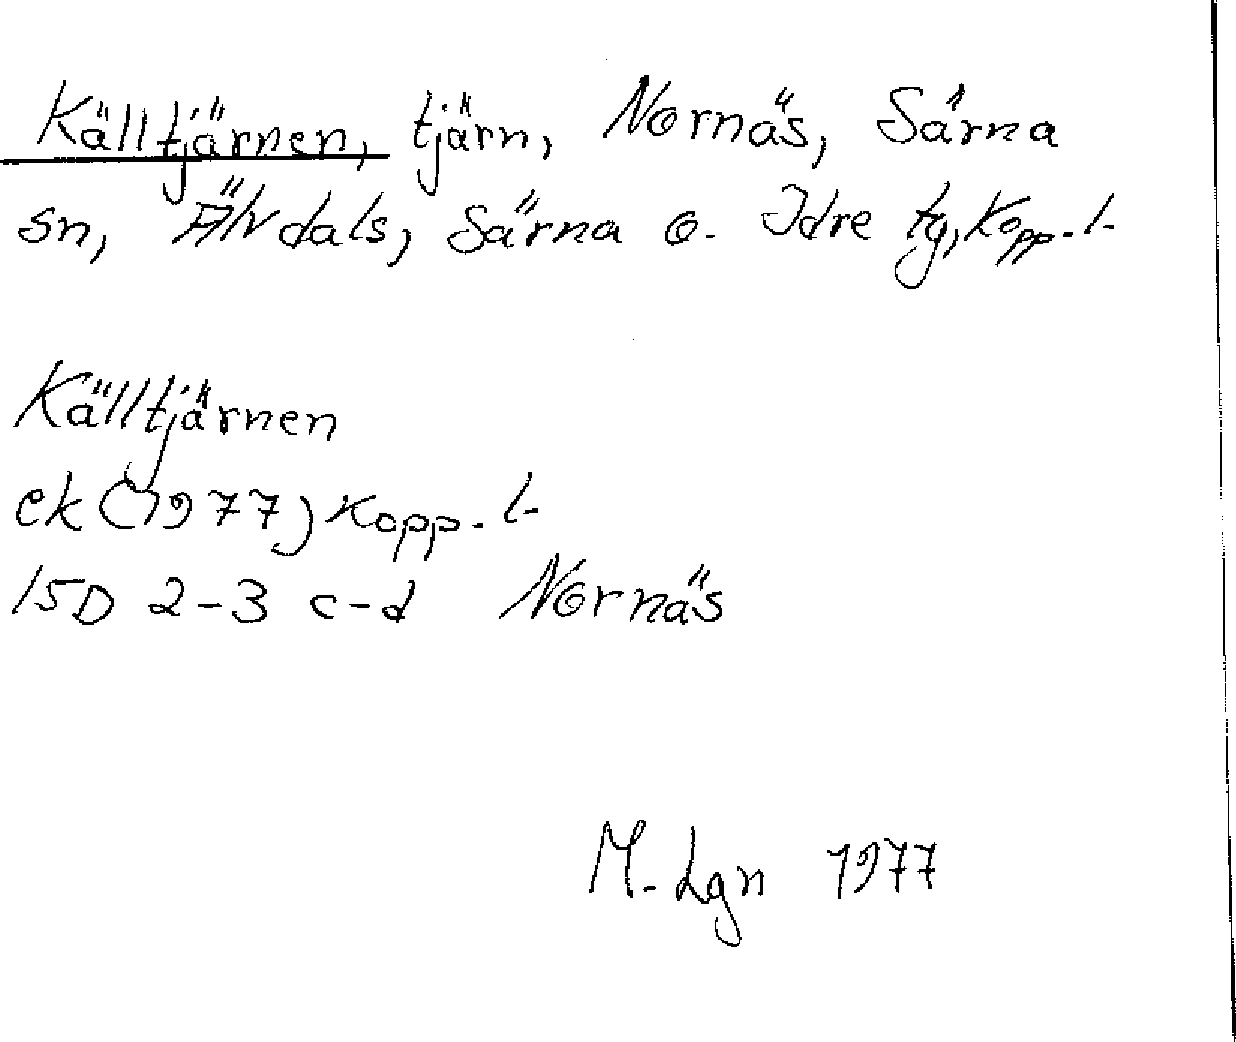 Källtjärnen, tjärn, Nornäs, Särna
sn, Älvdals, Särna o. Idre tg, Kopp. l.
Källtjärnen
ek (1977) Kopp. l.
15D 2-3 c-d Nornäs
M. Lgn 1977